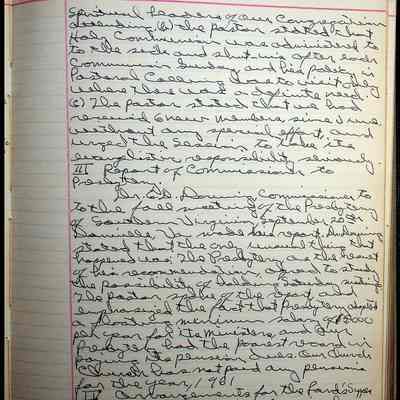 Spiritual Leaders of our Congregation
(b) the pastor stated that
Holy Communion was administered to
to the sick and shut-ins after each
Communion Sunday and his policy in
Pastoral Calling was to visit only
where there was a definite need.
(c) The pastor stated that we had
received 6 new members since June
without any special effort, and
urged the Session to take its
evangelistic responsibility seriously.
III Report of Commissioner to
Presbytery
Dr. Commissioner to
to the Fall meeting of the Presbytery
of Southern Virginia, September 20th
Danville, Va. made his report.
stated that the only unusual thing that
happened was: The Presbytery as the result
of his recommendation agreed to study
the possibility of holding Saturday meetings
The pastor spoke of the report and
emphasized the fact that Presbytery adopted
a floating minimum salary of
per year for its Ministers, and Our
Presbytery had the poorest record in
paying its pension dues. Our Church
Church has not paid any pension
for the year, 1961
IV Arrangements for the Lord's Supper